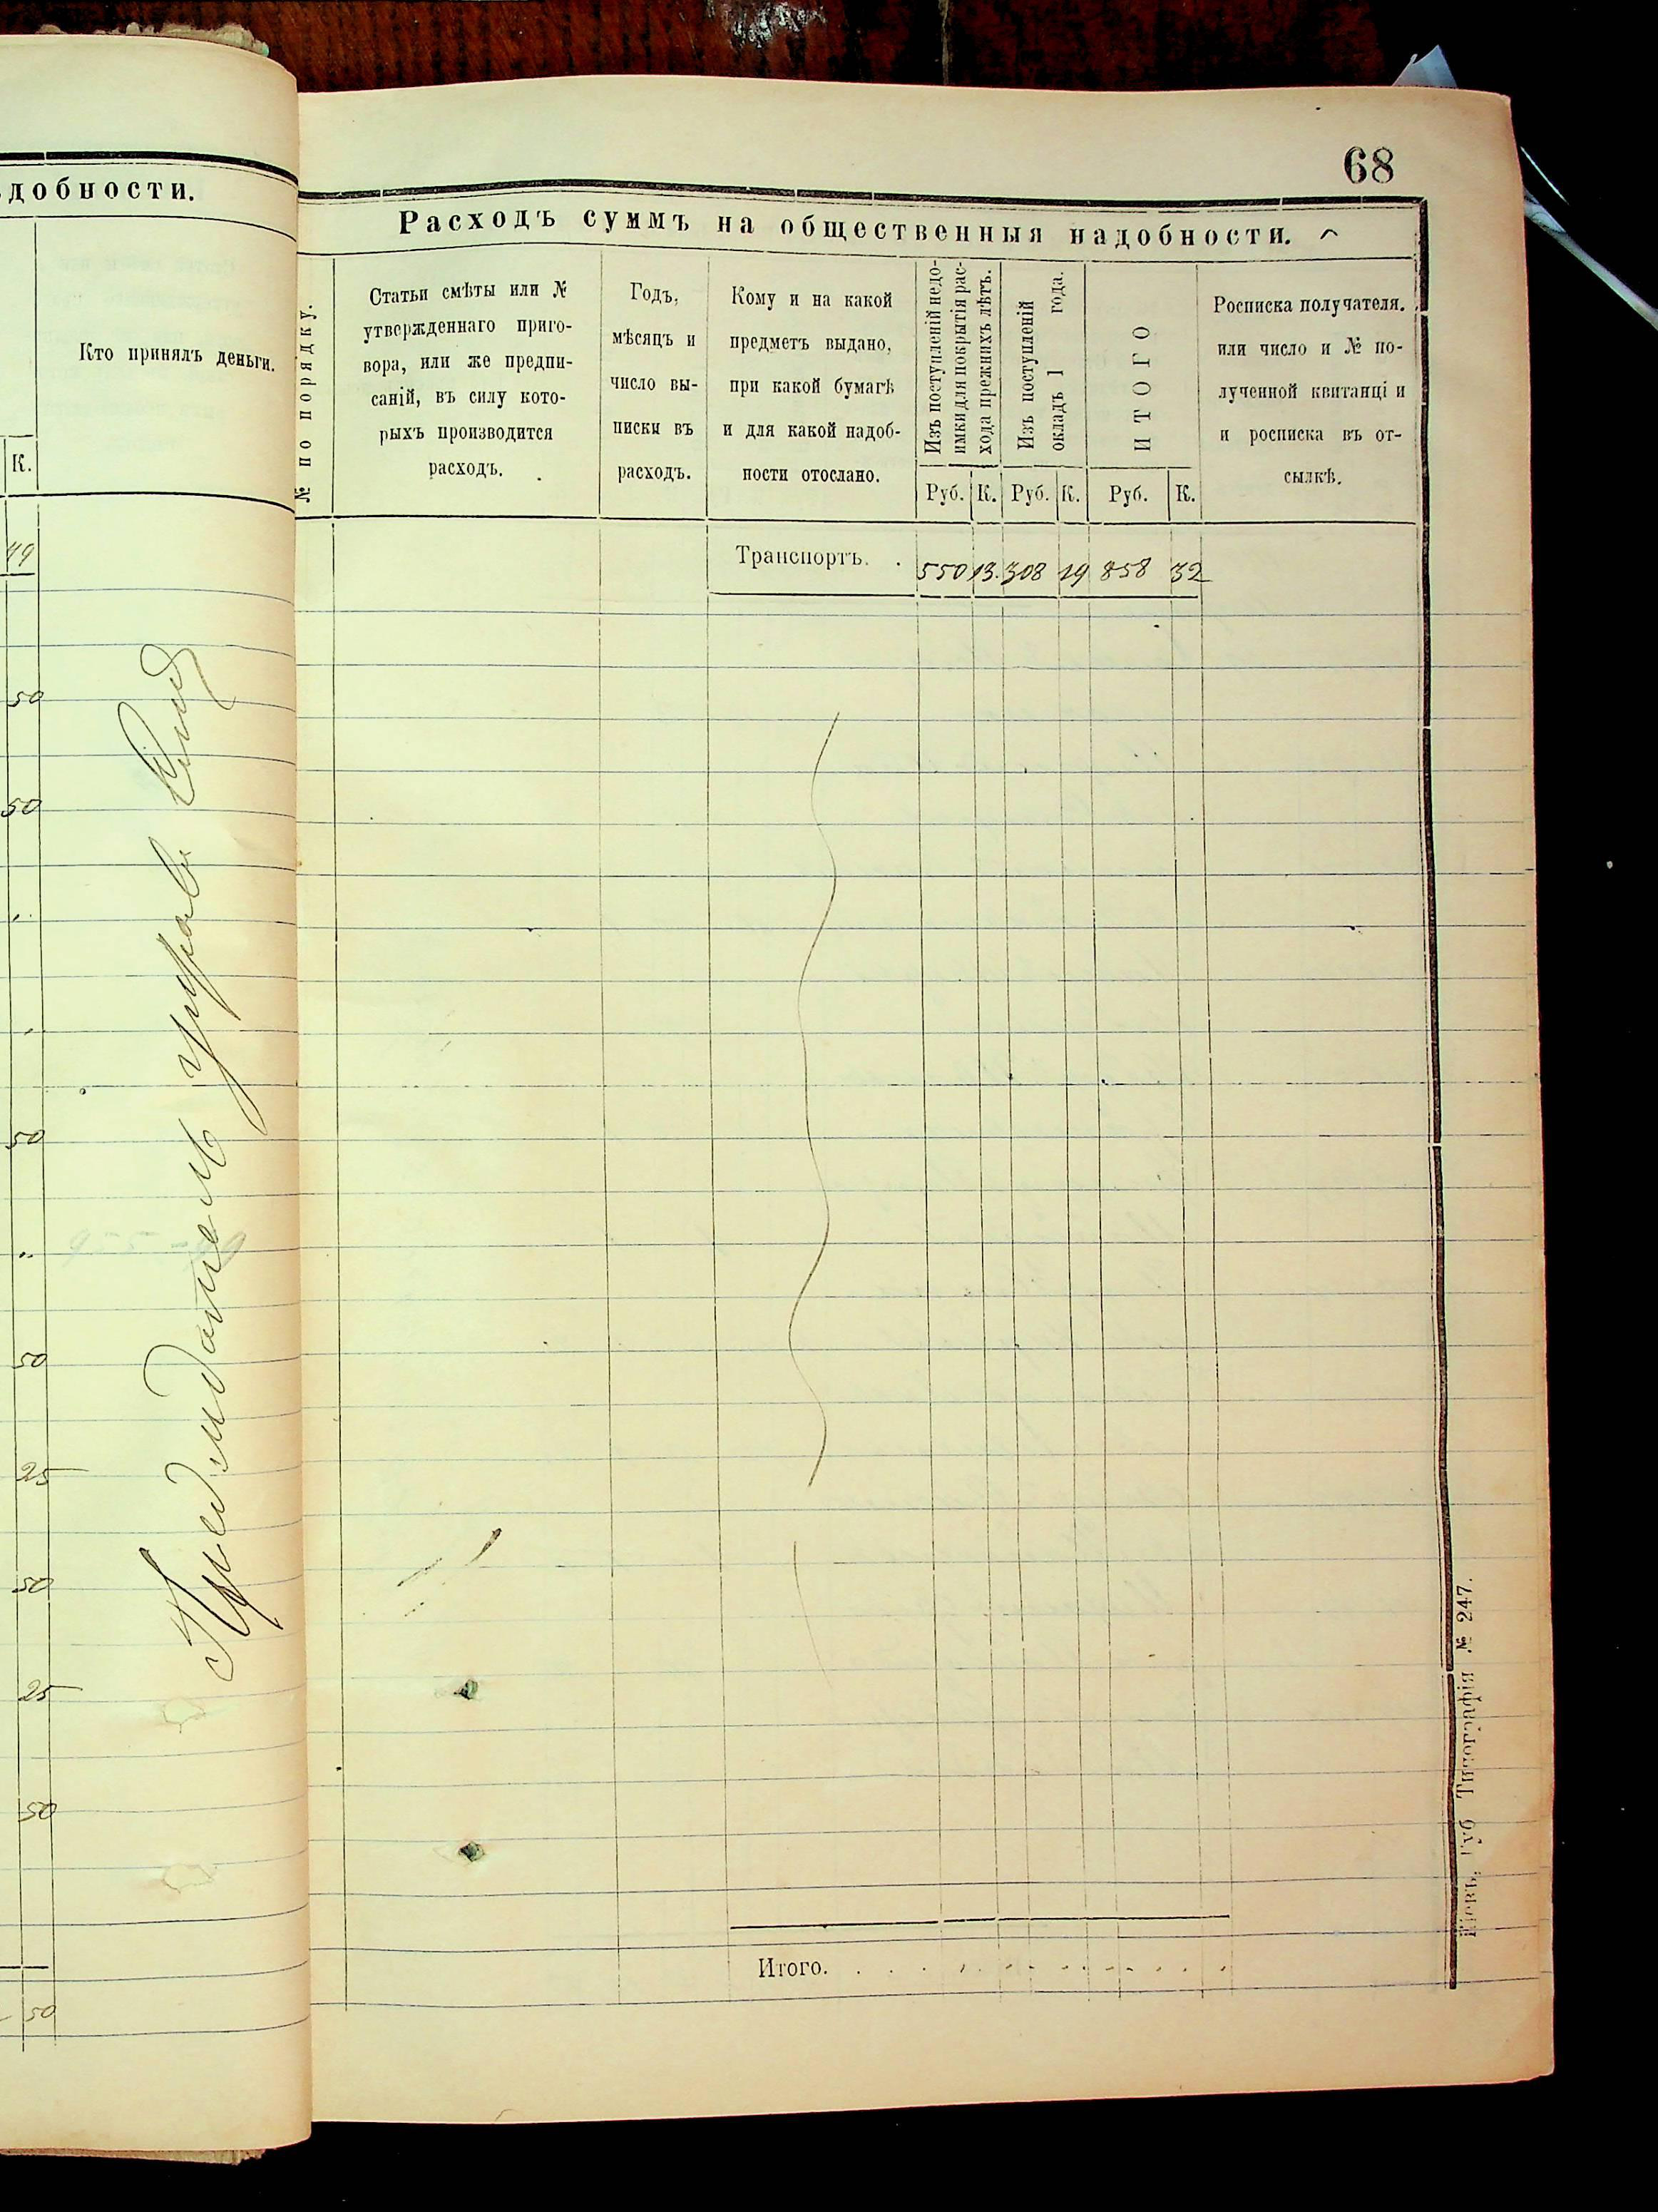 добности.
Кто принялъ деньги.
К.
49
50
50
50
50
25
50
25
50
50
68
Расходъ суммъ на общественныя надобности.
№ по порядку.
Статьи смѣты или №
утвержденнаго приго-
вора, или же предпи-
саній, въ силу кото-
рыхъ производится
расходъ.
Годъ,
мѣсяцъ и
число вы-
писки въ
расходъ.
Кому и на какой
предметъ выдано,
при какой бумагѣ
и для какой надоб-
ности отослано.
Изъ поступленій недо-
имки для покрытія рас-
хода прежнихъ лѣтъ.
Изъ поступленій
окладъ 1 года.
ИТОГО
Руб. К. Руб. К. Руб. К.
Росписка получателя.
или число и № по-
лученной квитанціи
и росписка въ от-
сылкѣ.
Транспортъ. . 550 13. 308 19 858 32
Итого.
Кіевъ, Губ Типографія № 247.